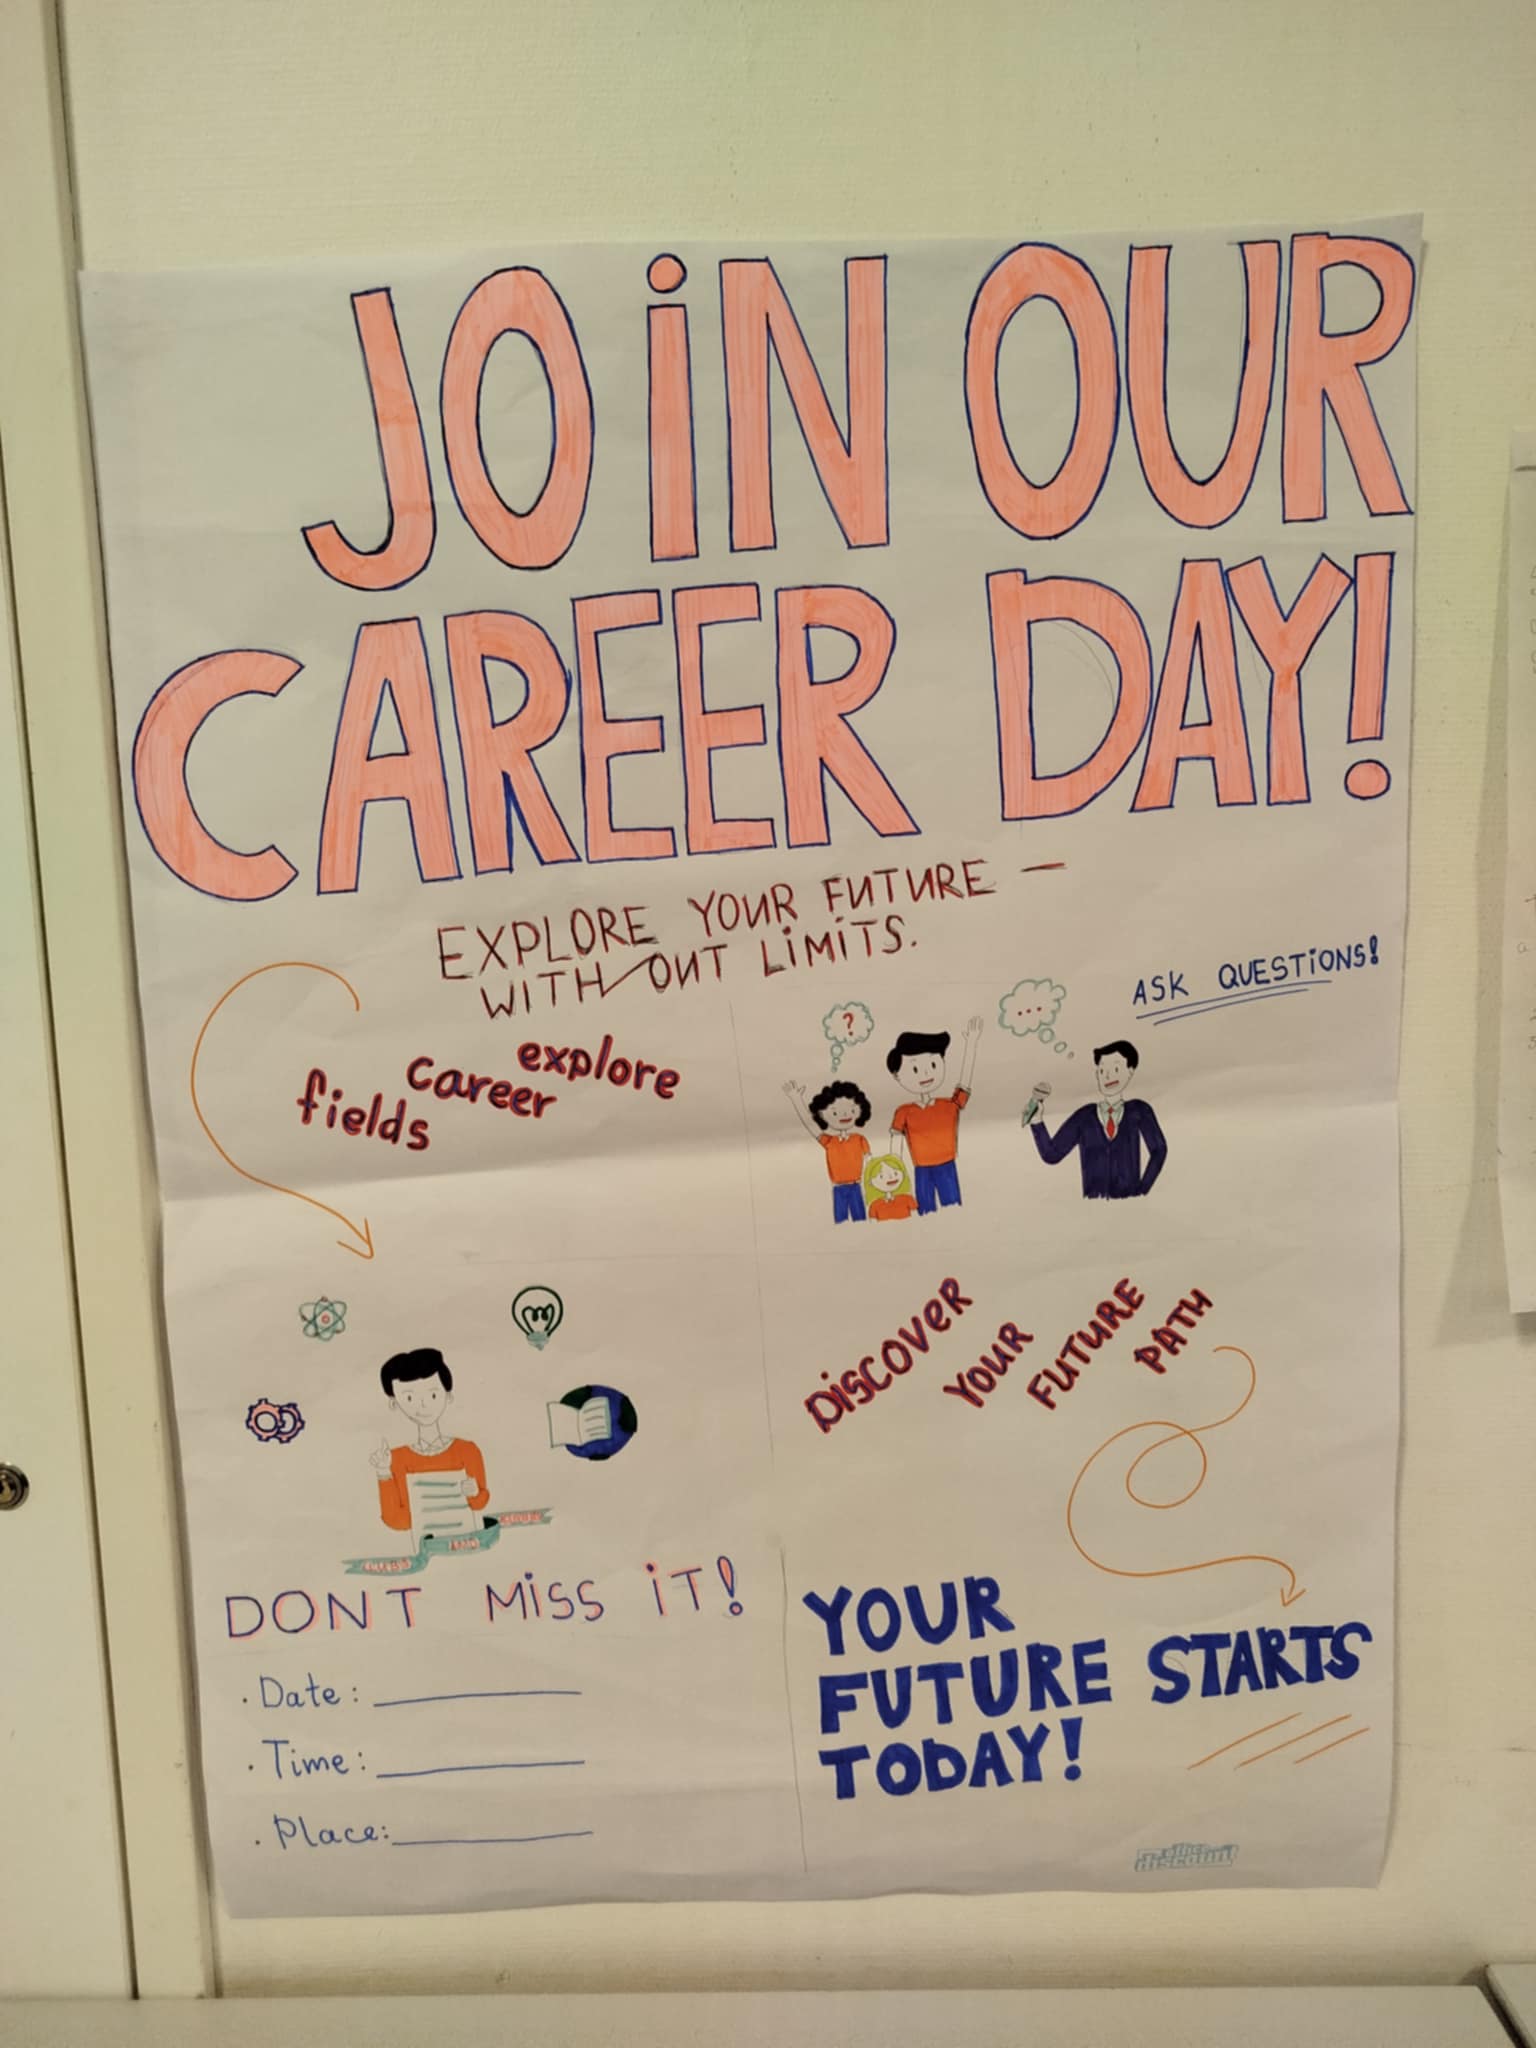 JOiN OUR
CAREER DAY!
EXPLORE YOUR FUTURE —
WITH OUT LiMiTS.
ASK QUESTiONS!
fields career explore
?
...
DiSCOVER YOUR FUTURE PATH
DONT MiSS iT!
· Date:
· Time:
· Place:
YOUR
FUTURE STARTS
TODAY!
office
discount